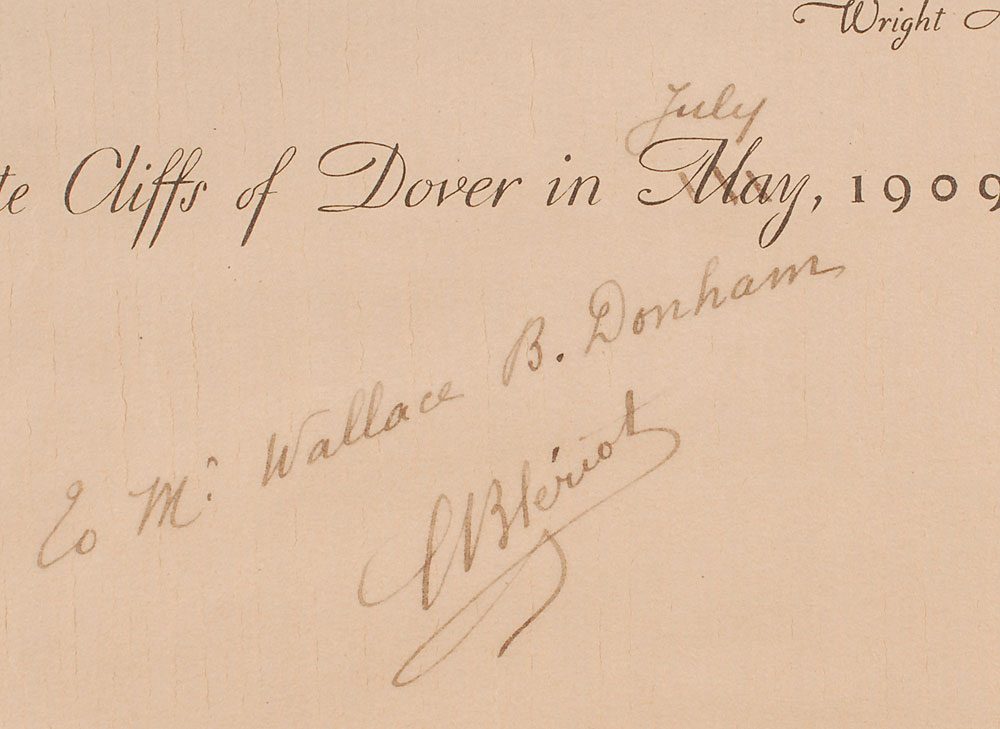 Wright
July
te Cliffs of Dover in May, 1909
To Mr. Wallace B. Donham
L Blériot